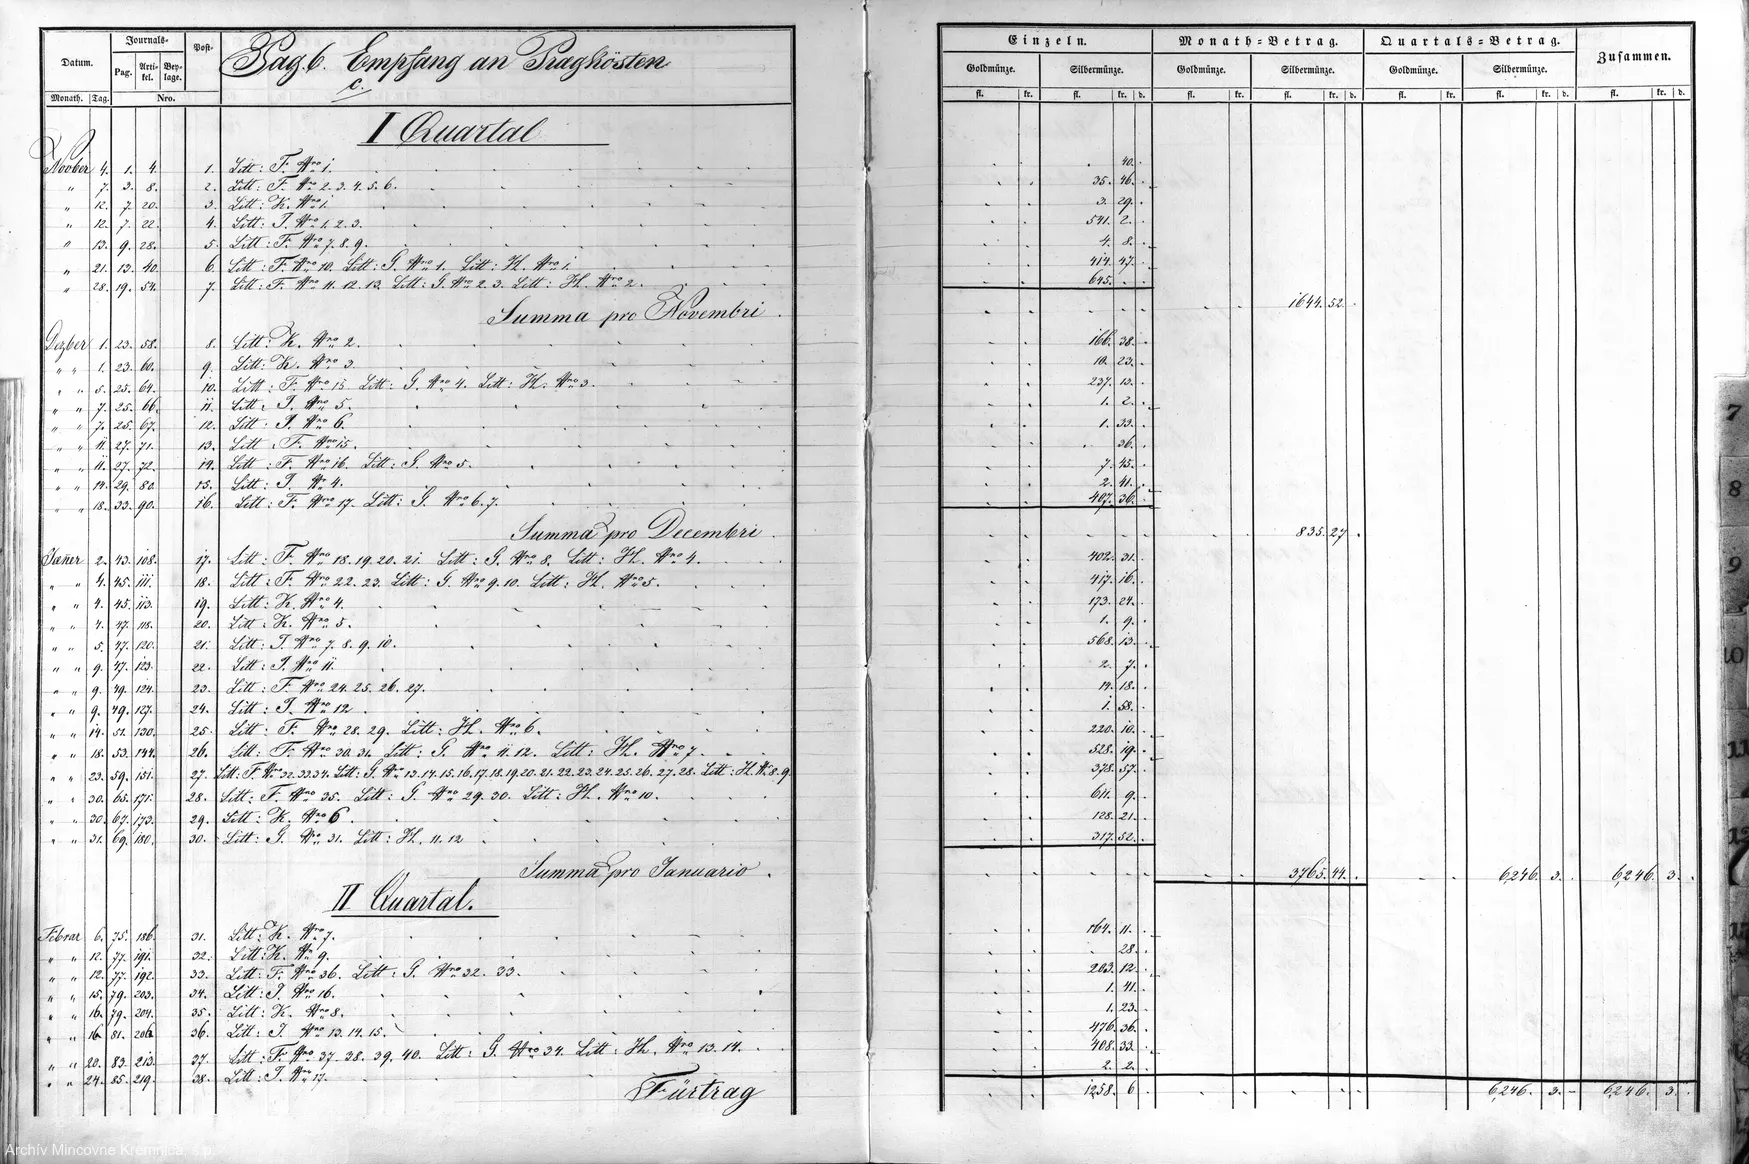 Datum. Journals- Post- Pag. 6. Empfang an Pragkösten
Pag. Arti-kel. Bey-lage. c.
Monath. Tag. Nro.
Einzeln. Monath=Betrag. Quartals=Betrag. Zusammen.
Goldmünze. Silbermünze. Goldmünze. Silbermünze. Goldmünze. Silbermünze.
fl. kr. fl. kr. d. fl. kr. fl. kr. d. fl. kr. fl. kr. d. fl. kr. d.
I Quartal
Novber 4. 1. 4. 1. Litt: F. Nro 1. 40.
" 7. 3. 8. 2. Litt: F. Nro 2. 3. 4. 5. 6. 35. 46.
" 12. 7. 20. 3. Litt: K. Nro 1. 3. 29.
" 12. 7. 22. 4. Litt: I. Nro 1. 2. 3. 541. 2.
" 13. 9. 28. 5. Litt: F. Nro 7. 8. 9. 4. 8.
" 21. 13. 40. 6. Litt: F. Nro 10. Litt: G. Nro 1. Litt: H. Nro 1. 414. 47.
" 28. 19. 54. 7. Litt: F. Nro 11. 12. 13. Litt: G. Nro 2. 3. Litt: H. Nro 2. 645.
Summa pro Novembri 1644. 52.
Dezber 1. 23. 58. 8. Litt: K. Nro 2. 166. 38.
" " 1. 23. 60. 9. Litt: K. Nro 3. 10. 23.
" " 5. 25. 64. 10. Litt: F. Nro 15 Litt: G. Nro 4. Litt: H. Nro 3. 237. 13.
" " 7. 25. 66. 11. Litt: I. Nro 5. 1. 2.
" " 7. 25. 67. 12. Litt: I. Nro 6. 1. 33.
" " 11. 27. 71. 13. Litt: F. Nro 15. 36.
" " 11. 27. 72. 14. Litt: F. Nro 16. Litt: G. Nro 5. 7. 45.
" " 14. 29. 80. 15. Litt: I. Nr 4. 2. 41.
" " 18. 33. 90. 16. Litt: F. Nro 17. Litt: G. Nro 6. 7. 407. 36.
Summa pro Decembri 835. 27.
Jäner 2. 43. 108. 17. Litt: F. Nro 18. 19. 20. 21. Litt: G. Nro 8. Litt: H. Nro 4. 402. 31.
" " 4. 45. 111. 18. Litt: F. Nro 22. 23. Litt: G. Nro 9. 10. Litt: H. Nro 5. 417. 16.
" " 4. 45. 113. 19. Litt: K. Nro 4. 173. 24.
" " 4. 47. 118. 20. Litt: K. Nro 5. 1. 9.
" " 5. 47. 120. 21. Litt: I. Nro 7. 8. 9. 10. 568. 13.
" " 9. 47. 123. 22. Litt: I. Nro 11. 2. 7.
" " 9. 49. 124. 23. Litt: F. Nro 24. 25. 26. 27. 14. 18.
" " 9. 49. 127. 24. Litt: I. Nro 12. 1. 58.
" " 14. 51. 130. 25. Litt: F. Nro 28. 29. Litt: H. Nro 6. 220. 10.
" " 18. 53. 144. 26. Litt: F. Nro 30. 31. Litt: G. Nro 11. 12. Litt: H. Nro 7. 528. 19.
" " 23. 59. 151. 27. Litt: F. Nro 32. 33. 34. Litt: G. Nro 13. 14. 15. 16. 17. 18. 19. 20. 21. 22. 23. 24. 25. 26. 27. 28. Litt: H. Nro 8. 9. 378. 57.
" " 30. 65. 171. 28. Litt: F. Nro 35. Litt: G. Nro 29. 30. Litt: H. Nro 10. 611. 9.
" " 30. 67. 173. 29. Litt: K. Nro 6. 128. 21.
" " 31. 69. 180. 30. Litt: G. Nro 31. Litt: H. 11. 12 317. 52.
Summa pro Januario. 3765. 44. 6246. 3. 6246. 3.
II Quartal.
Febrar 6. 75. 186. 31. Litt: K. Nro 7. 164. 11.
" " 12. 77. 191. 32. Litt: K. Nr 9. 28.
" " 12. 77. 192. 33. Litt: F. Nro 36. Litt: G. Nro 32. 33. 203. 12.
" " 15. 79. 203. 34. Litt: I. Nro 16. 1. 41.
" " 16. 79. 204. 35. Litt: K. Nro 8. 1. 23.
" " 16. 81. 206. 36. Litt: I. Nro 13. 14. 15. 476. 36.
" " 20. 83. 213. 37. Litt: F. Nro 37. 38. 39. 40. Litt: G. Nro 34. Litt: H. Nro 13. 14. 408. 33.
" " 24. 85. 219. 38. Litt: I. Nro 17. 2. 2.
Fürtrag 1258. 6. 6246. 3. 6246. 3.
7
8
9
10
11
Archív Mincovne Kremnica, š.p.